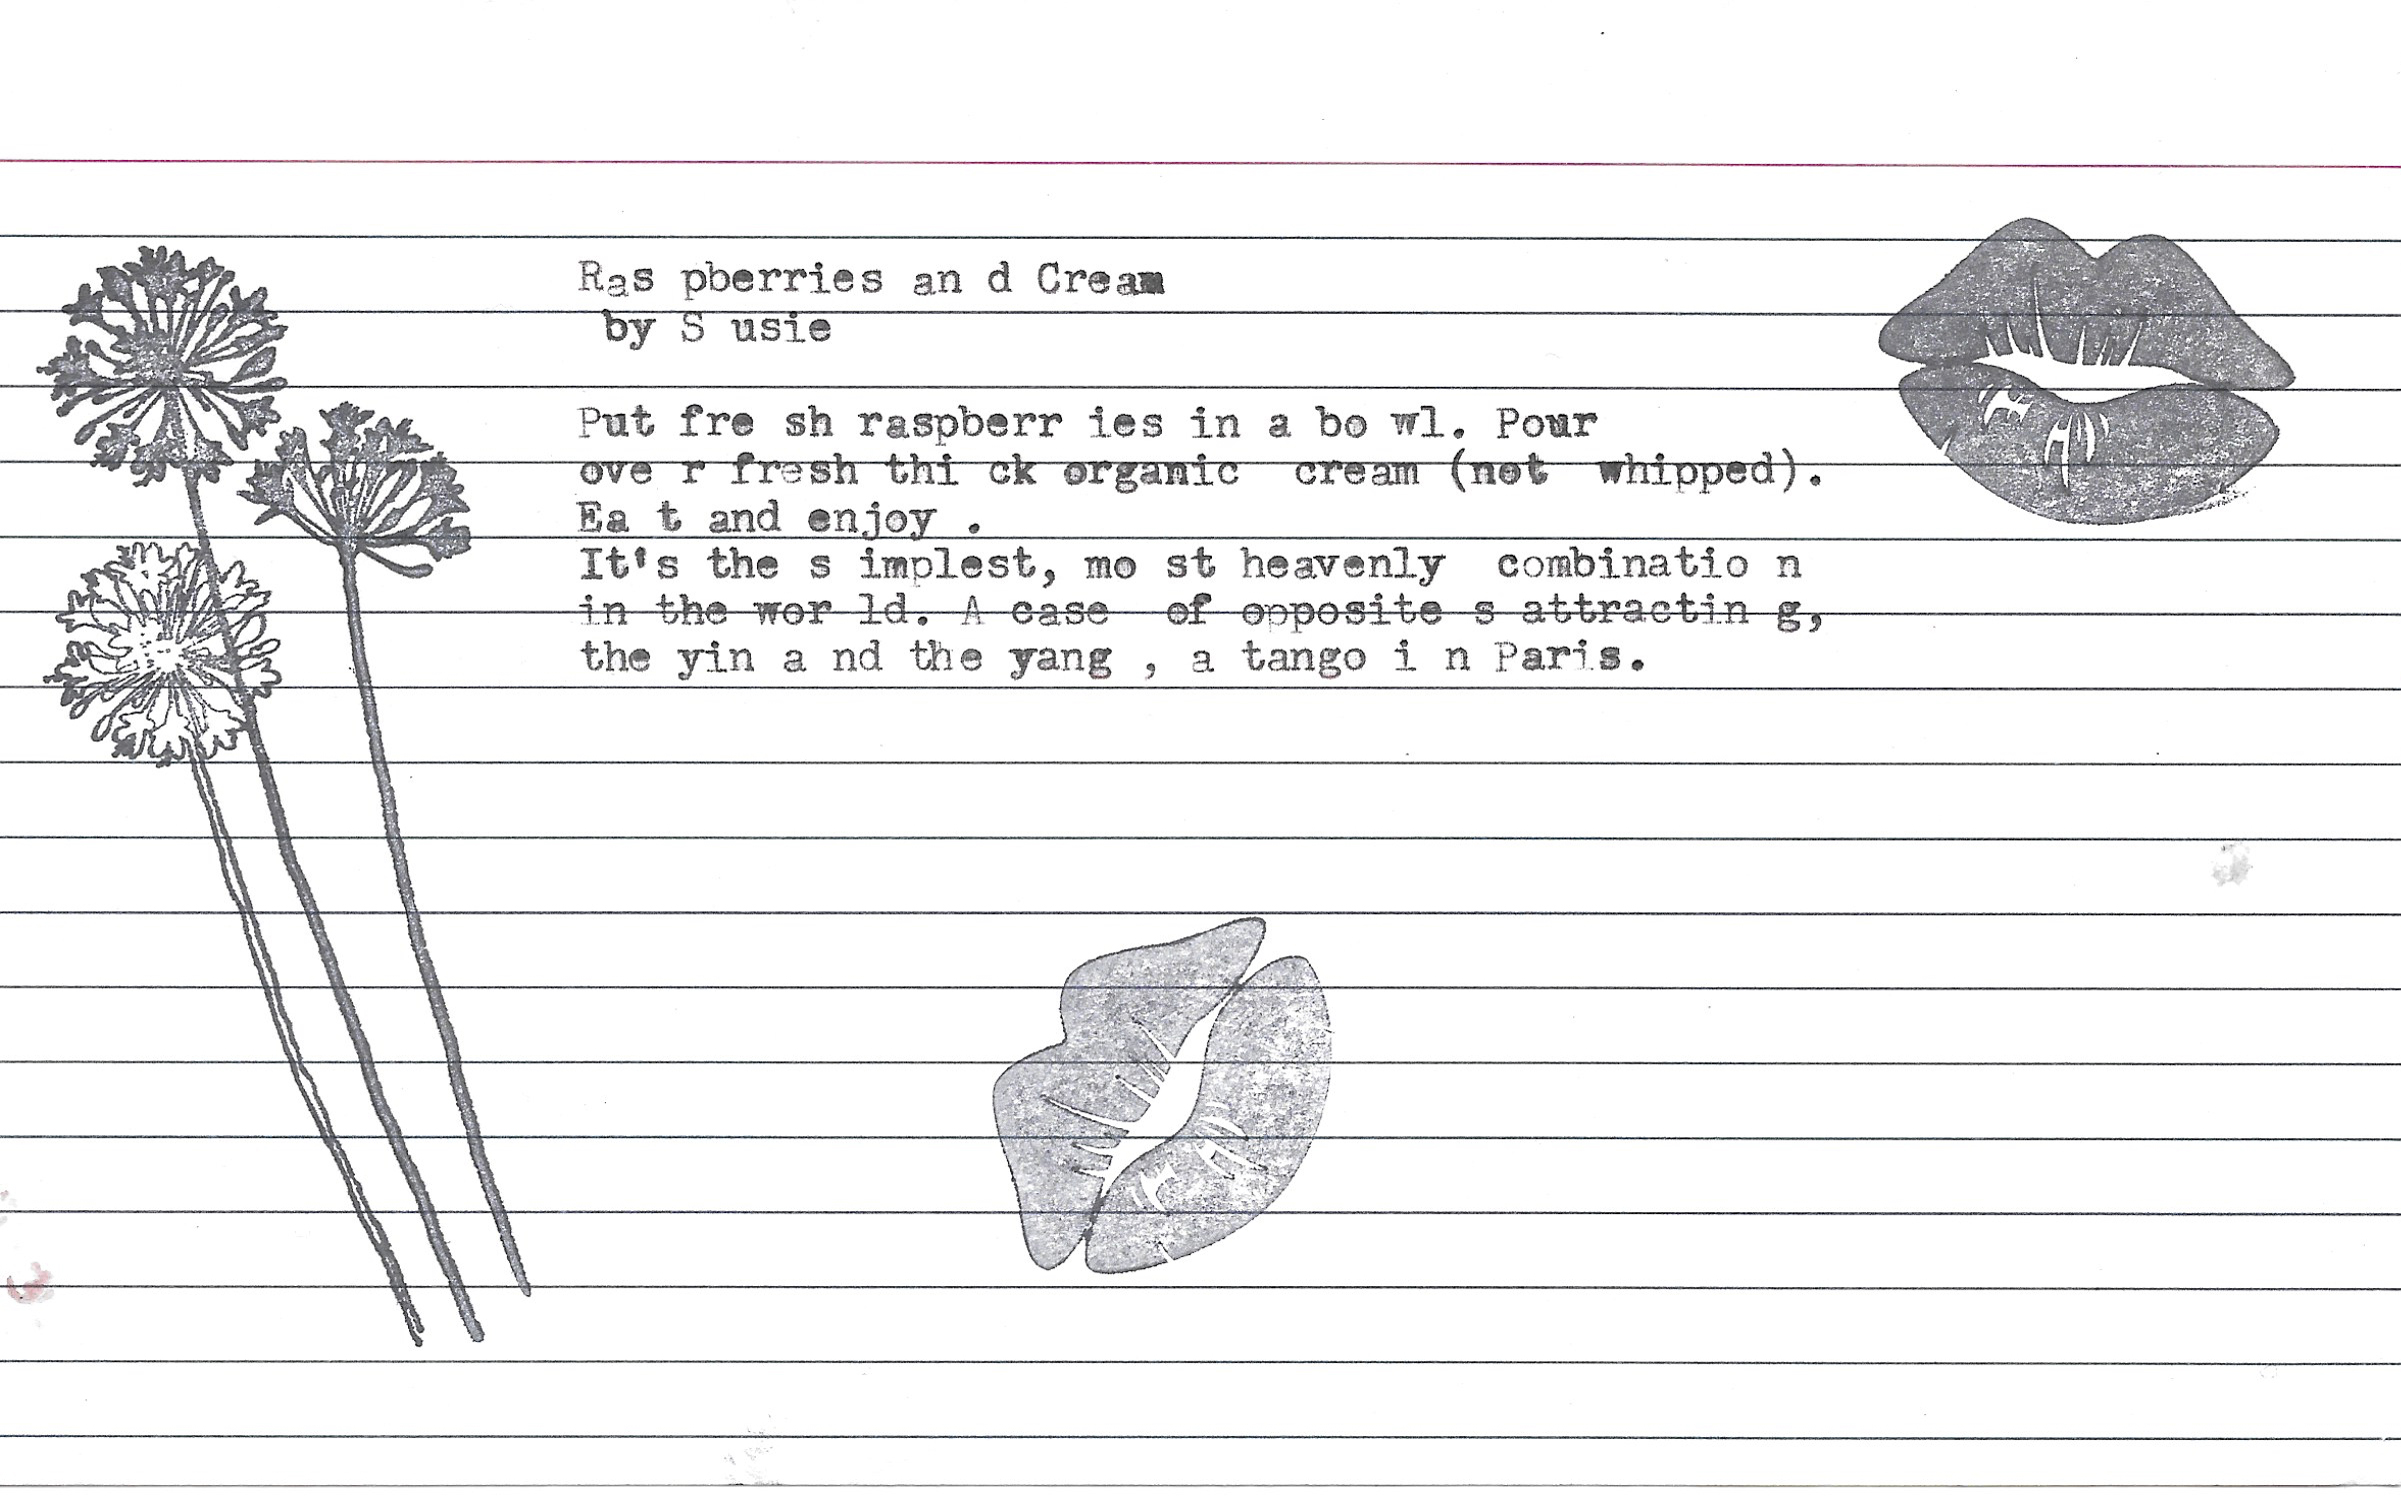 Ras pberries an d Cream
by S usie
Put fre sh raspberr ies in a bo wl. Pour
ove r fresh thi ck organic  cream (not  whipped).
Ea t and enjoy .
It's the s implest, mo st heavenly  combinatio n
in the wor ld. A case  of opposite s attractin g,
the yin a nd the yang , a tango i n Paris.